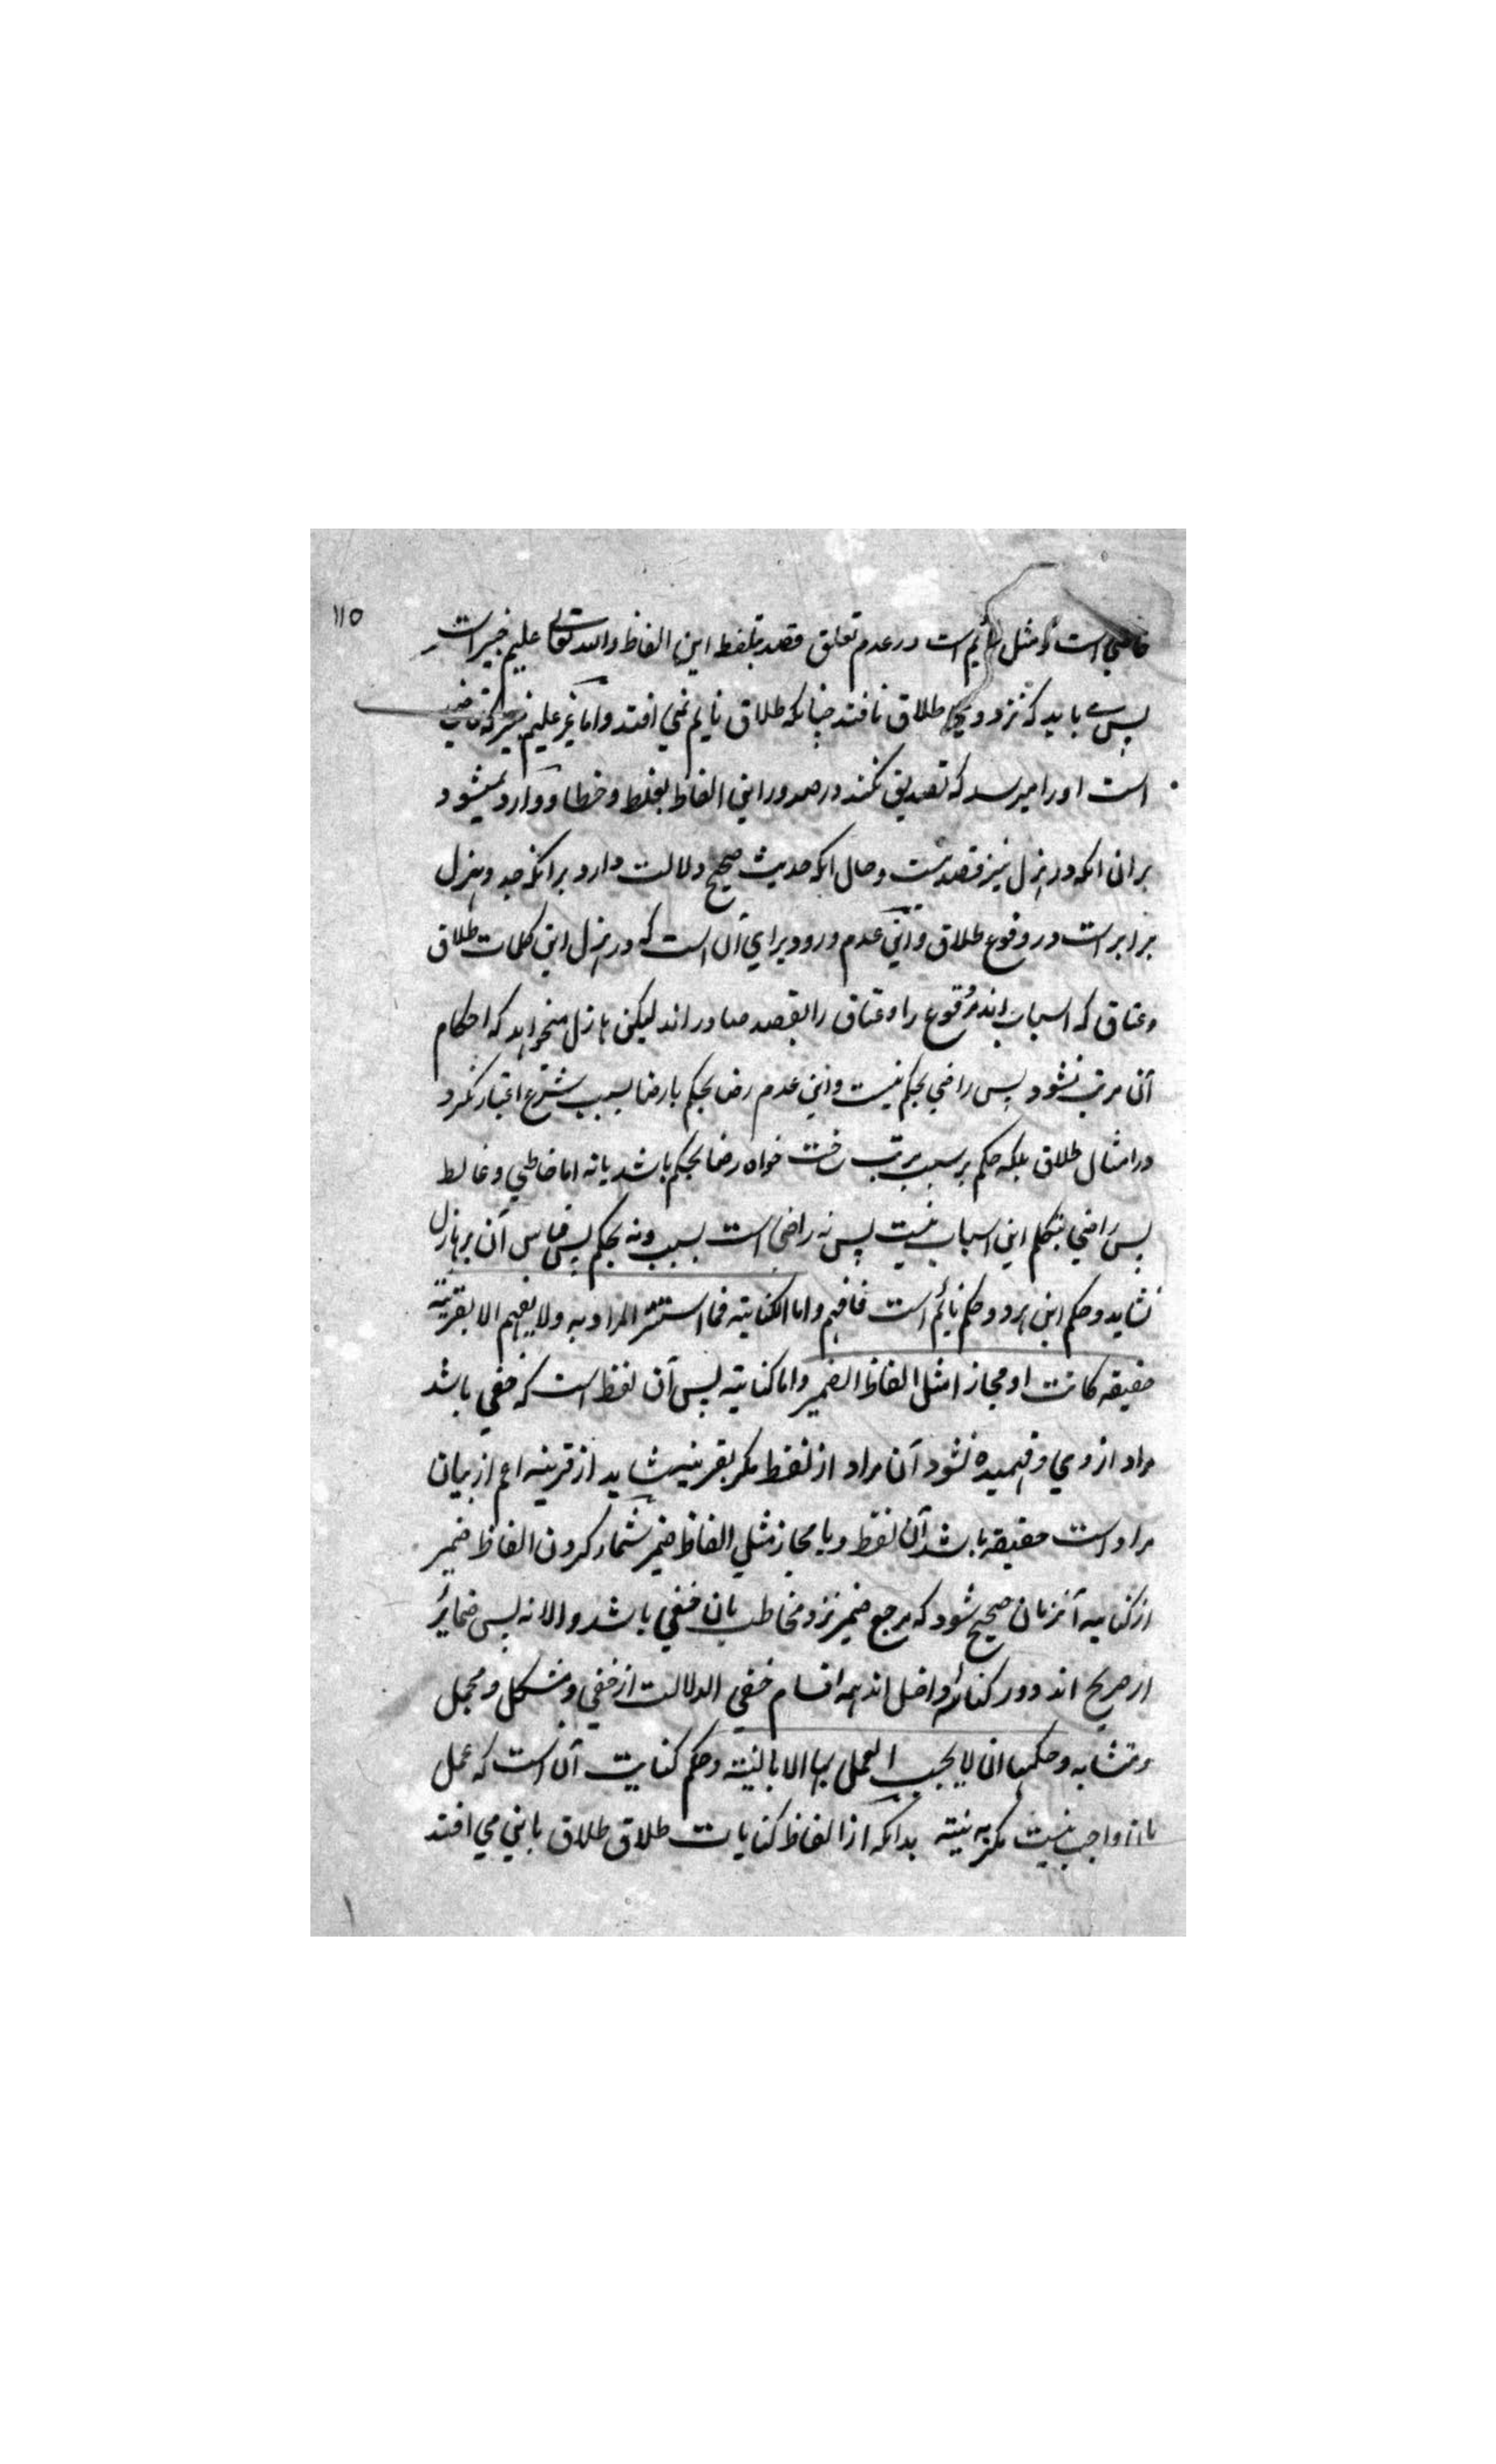 ۱۱۵
خاطی است و مثل نایم است در عدم تعلق قصد بتلفظ این الفاظ و الله تعالی علیم خبیر است
پس باید که نزد وی طلاق نافتد چنانکه طلاق نایم نمی افتد و اما غیر علیم خبیر که قاضی
است او را میرسد که تصدیق نکند در صدور این الفاظ بغلط و خطا و وارد نمیشود
بر ان انکه در هزل نیز قصد نیست و حال انکه حدیث صحیح دلالت دارد بر انکه جد و هزل
برابر است در وقوع طلاق و این عدم ورود برای آن است که در هزل این کلمات طلاق
و عتاق که اسباب اند وقوع را و عتاق را بقصد صادر اند لیکن هازل میخواهد که احکام
آن مرتب نشود پس راضی بحکم نیست و این عدم رضا بحکم با رضا بسبب شرع اعتبار نکرد
در امثال طلاق بلکه حکم بر سبب مرتب ساخت خواه رضا بحکم باشد یا نه اما خاطی و غالط
پس راضی بتکلم این اسباب نیست پس نه راضی است بسبب و نه بحکم پس قیاس آن بر هازل
نشاید و حکم این هر دو حکم نایم است فافهم و اما الکنایته فما استتر المراد به ولا یفهم الا بقرینة
حقیقه کانت او مجازا مثل الفاظ الضمیر و اما کنایته پس آن لفظ است که خفی باشد
مراد از وی و فهمیده نشود آن مراد از لفظ مکر بقرینه شاید از قرینه اعم از بیان
مراد است حقیقه باشد آن لفظ و یا مجاز مثل الفاظ ضمیر شمار کردن الفاظ ضمیر
از کنایه آنزمان صحیح شود که مرجع ضمیر نزد مخاطب بان خفی باشد و الا نه پس ضمایر
از صریح اند و در کنایه داخل اند همه اقسام خفی الدلالت از خفی و مشکل و مجمل
و متشابه و حکمها ان لا یجب العمل بها الا بالنیته و حکم کنایت آن است که عمل
بان واجب نیست مکر به نیته بدانکه از الفاظ کنایات طلاق طلاق باین می افتد